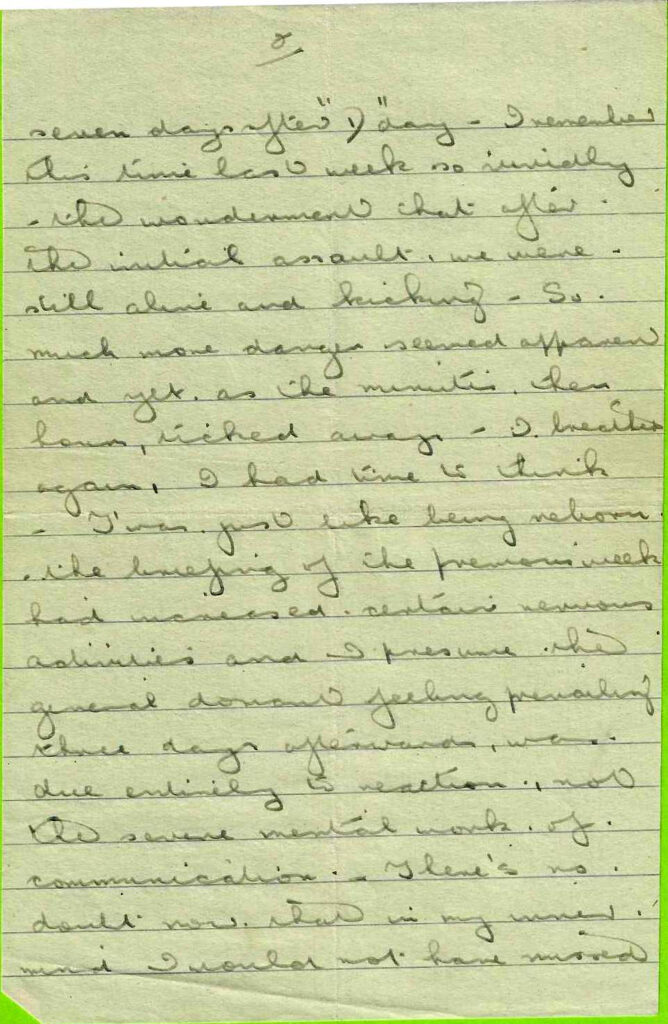 2
seven days after "D" day - I remember
this time last week so vividly
- the wonderment that after
the initial assault, we were -
still alive and kicking - So.
much more danger seemed apparent
and yet. as the minutes, then
hours, ticked away - I breathed
again, I had time to think
- I was just like being reborn.
. the briefing of the previous week
had increased. certain nervous
activities and I presume the
general dormant feeling prevailing
three days afterwards, was.
due entirely to reaction, not
the severe mental work. of.
communication. - There's no.
doubt now. that in my inner.
mind I would not have missed